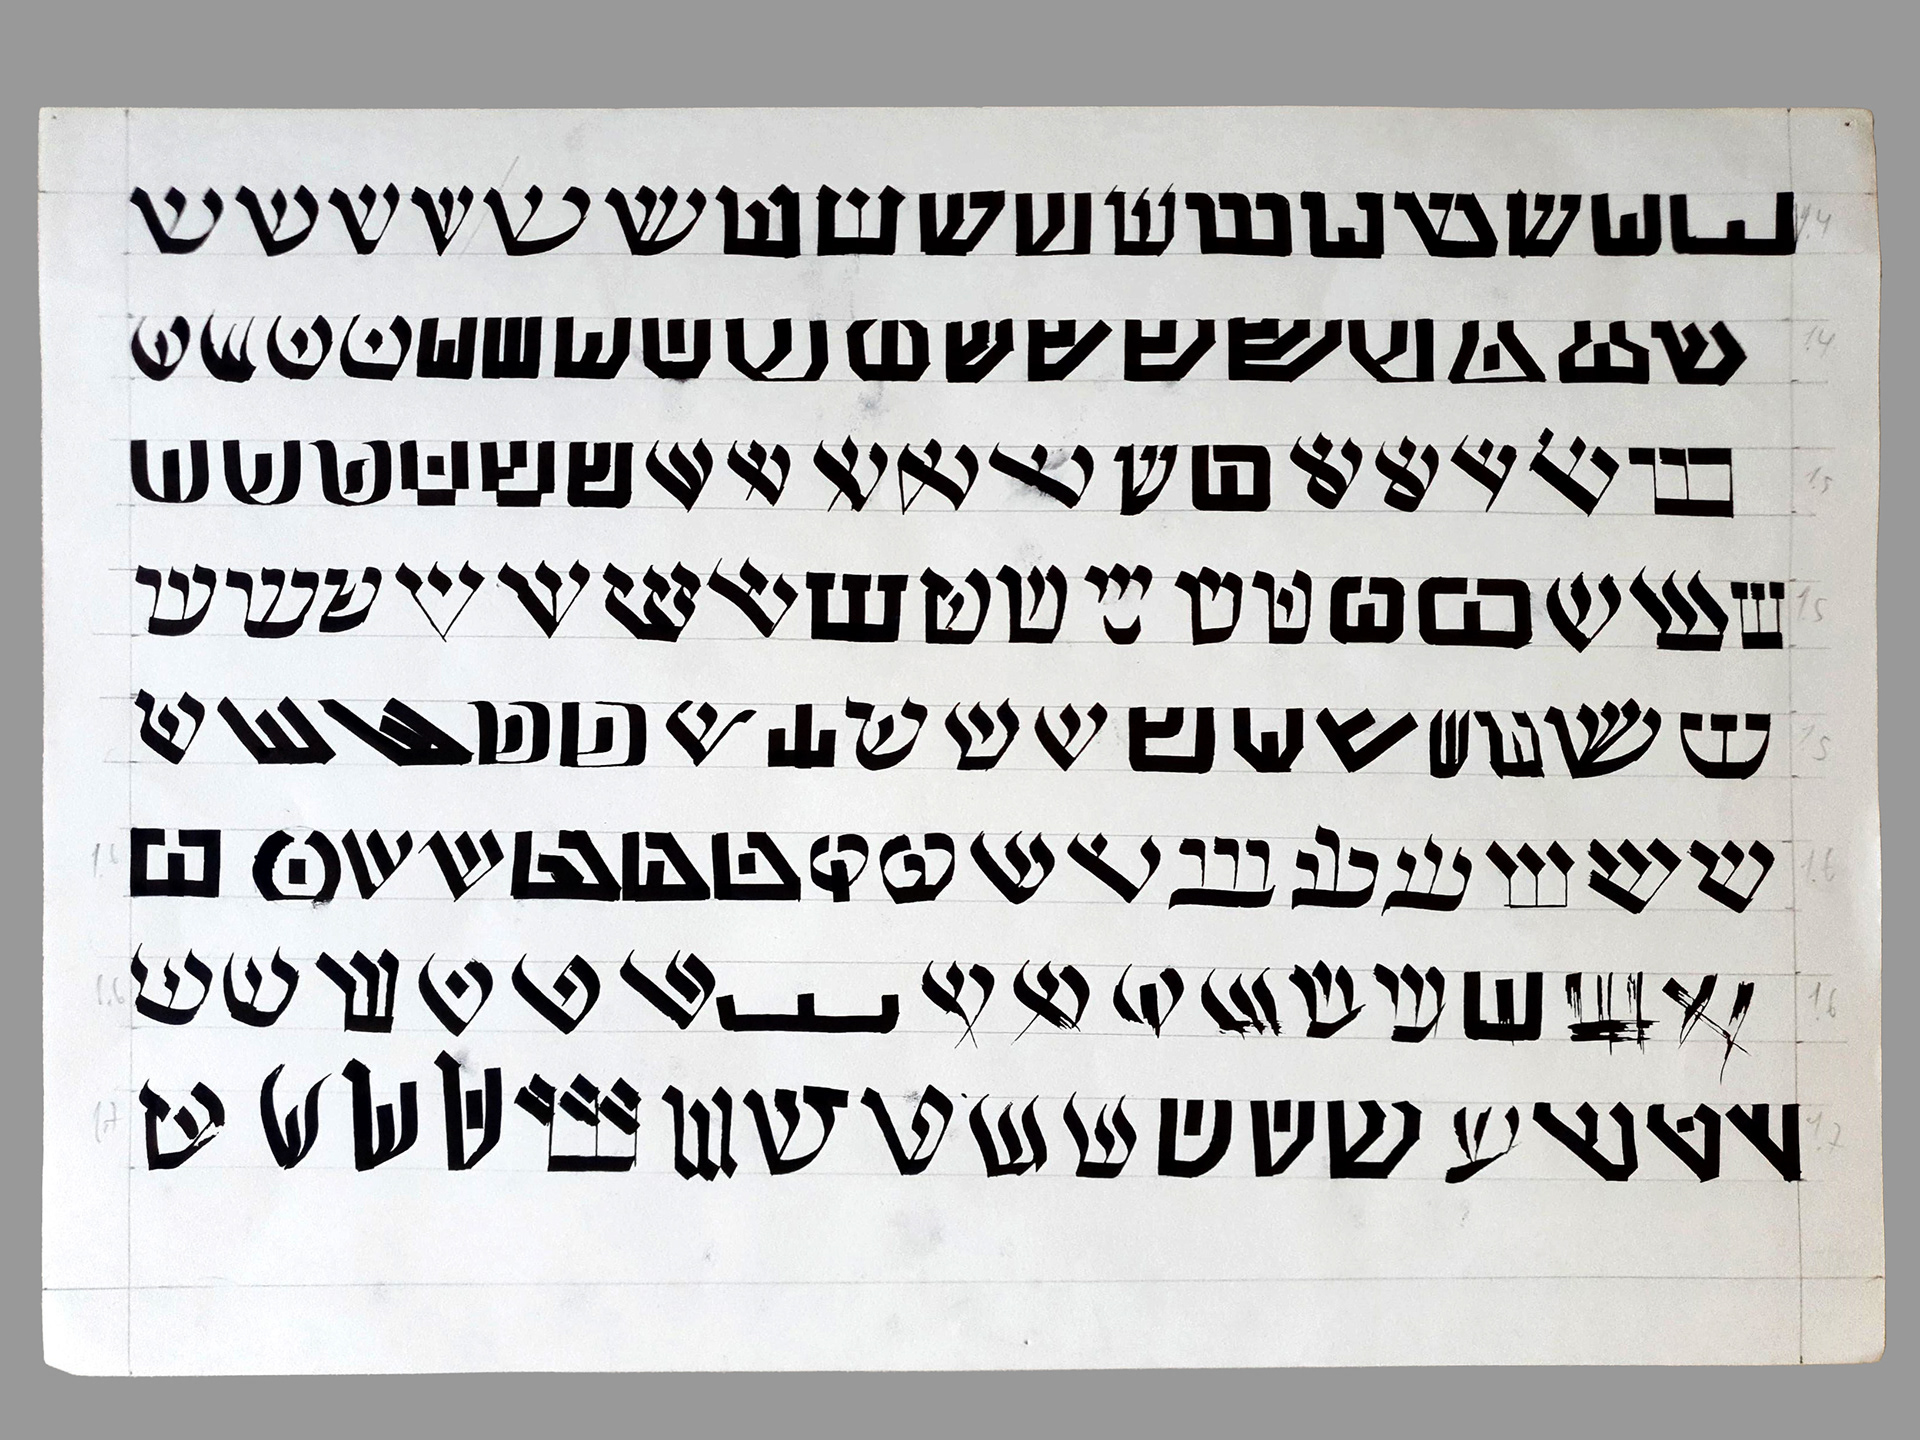 ש ש ש ש ש ש ש ש ש ש ש ש ש ש ש ש ש 1.4
ש ש ש ש ש ש ש ש ש ש ש ש ש ש ש ש ש ש 1.4
ש ש ש ש ש ש ש ש ש ש ש ש ש ש ש ש ש ש 1.5
ש ש ש ש ש ש ש ש ש ש ש ש ש ש ש ש ש ש 1.5
ש ש ש ש ש ש ש ש ש ש ש ש ש ש ש ש ש 1.5
1.6 ש ש ש ש ש ש ש ש ש ש ש ש ש ש ש ש ש 1.6
1.6 ש ש ש ש ש ש ש ש ש ש ש ש ש ש ש ש 1.6
1.7 ש ש ש ש ש ש ש ש ש ש ש ש ש ש ש ש ש 1.7